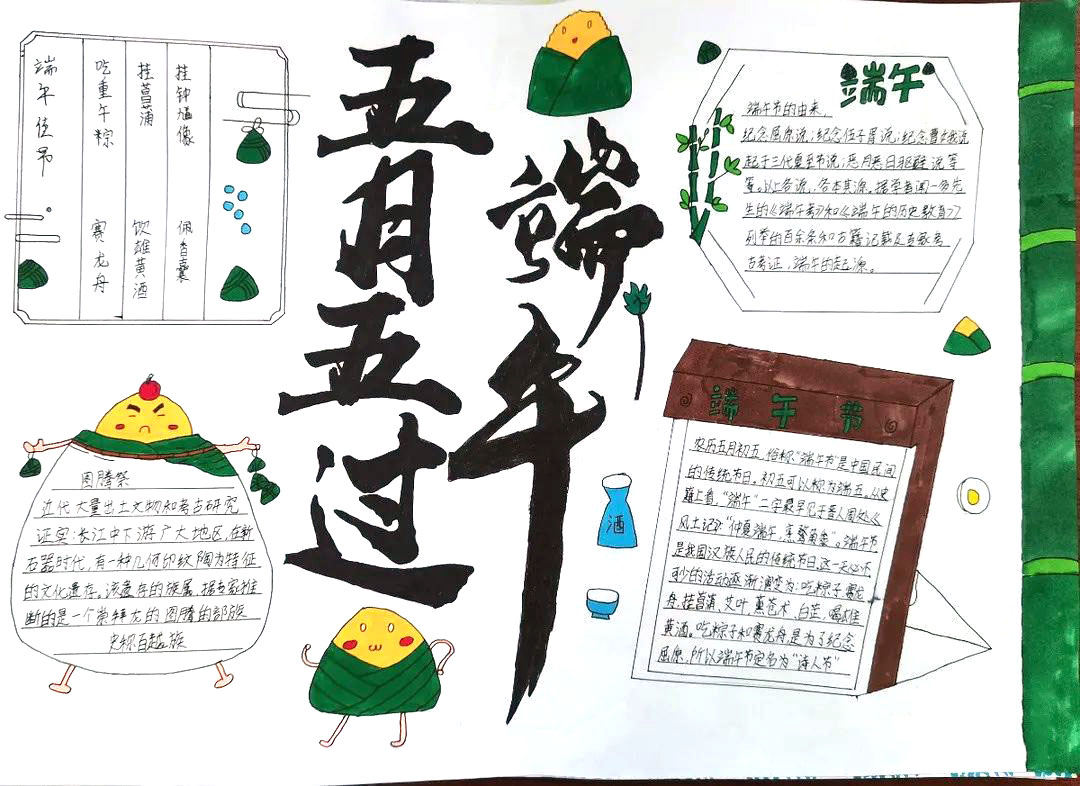 端午佳节。
吃重午粽 赛龙舟
挂菖蒲 饮雄黄酒
挂钟馗像 佩香囊
五月五过
端午
端午
端午节的由来,
纪念屈原说;纪念伍子胥说;纪念曹娥说
起于三代夏至节说;恶月恶日驱避说等
等。以上各说,各本其源。据学者闻一多先
生的《端午考》和《端午的历史教育》
列举的百余条和古籍记载及专家考
古考证,端午的起源。
图腾祭
近代大量出土文物和考古研究
证实:长江中下游广大地区,在新
石器时代,有一种几何印纹陶为特征
的文化遗存。该遗存的族属,据专家推
断的是一个崇拜龙的图腾的部族
史称百越族
酒
端午节
农历五月初五,俗称“端午节”是中国民间
的传统节日。初五可以称为端五。从史
籍上看,“端午”二字最早见于晋人周处《
风土记》“仲夏端午,烹鹜角黍”。端午节
是我国汉族人民的传统节日,这一天必不
可少的活动逐渐演变为:吃粽子,赛龙
舟,挂菖蒲,艾叶,薰苍术,白芷,喝雄
黄酒。吃粽子和赛龙舟是为了纪念
屈原,所以端午节定名为“诗人节”